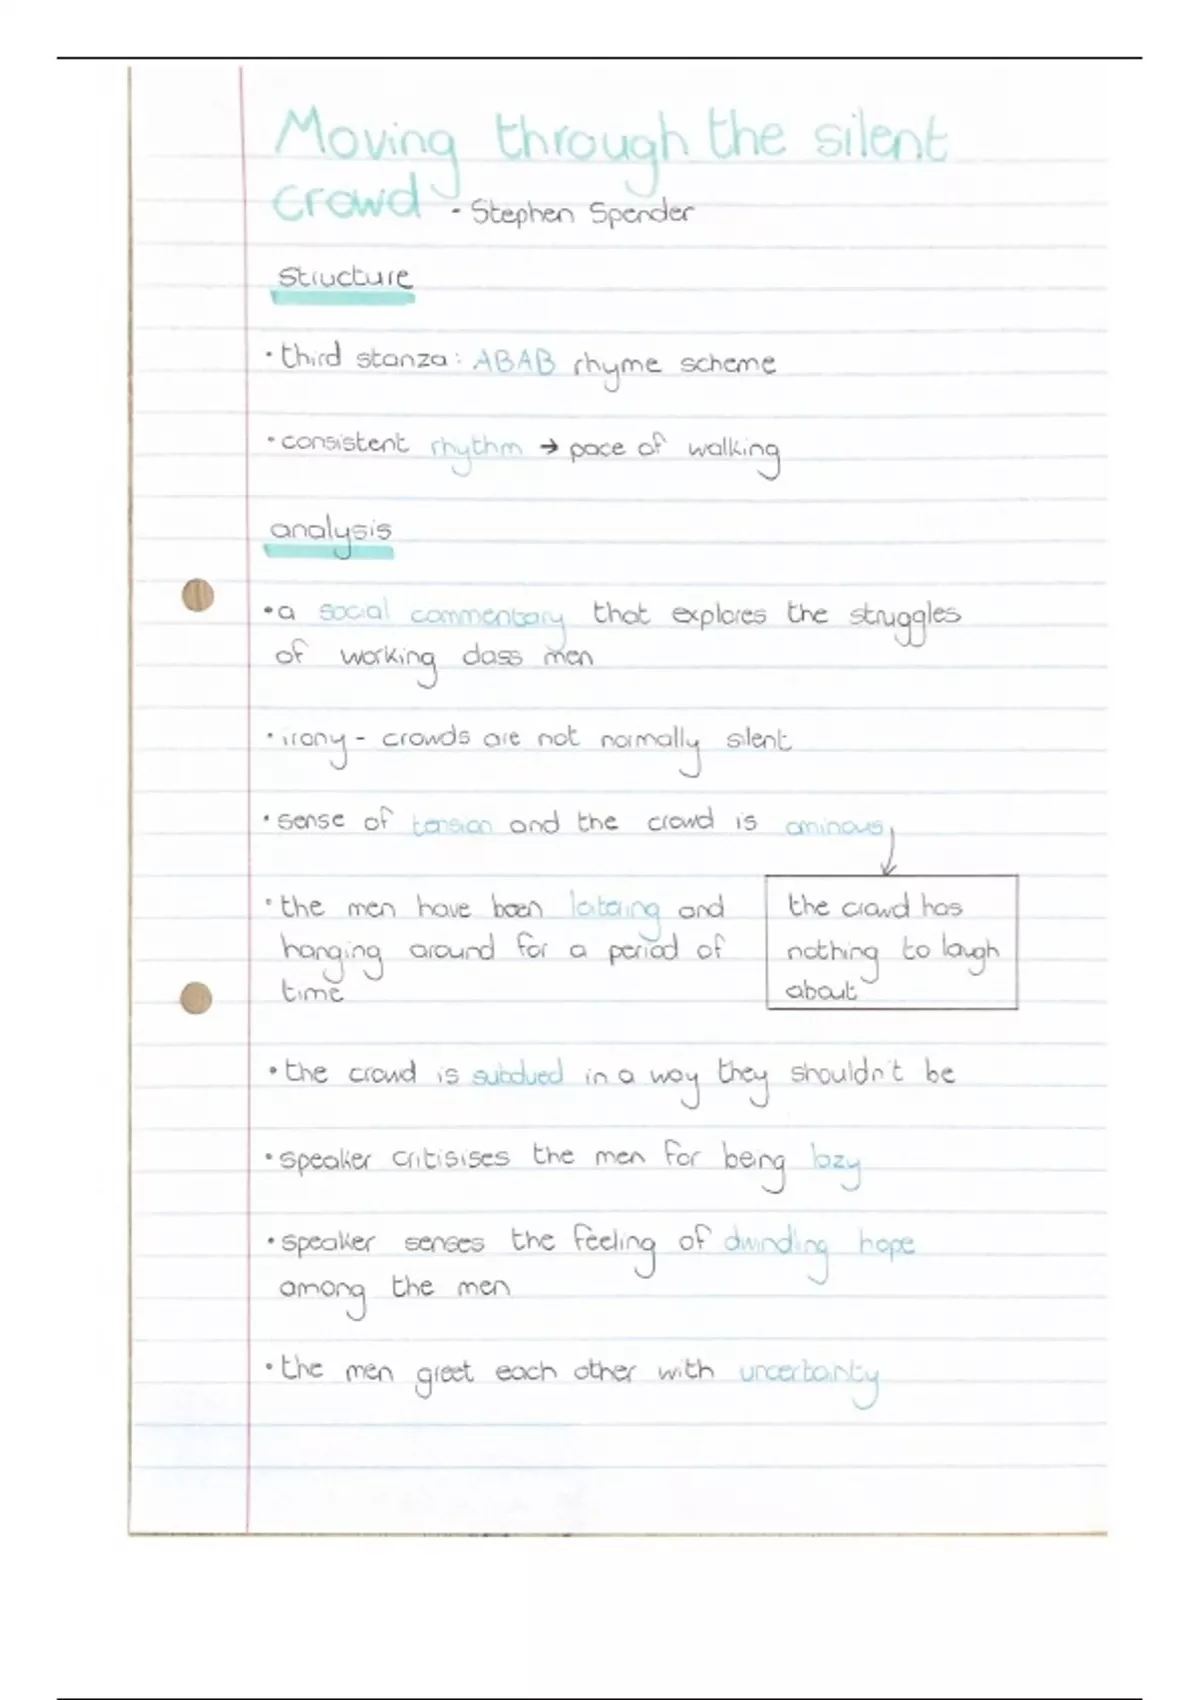 Moving through the silent
crowd - Stephen Spender
structure
• third stanza: ABAB rhyme scheme
• consistent rhythm → pace of walking
analysis
• a social commentary that explores the struggles
of working class men
• irony - crowds are not normally silent
• sense of tension and the crowd is ominous
• the men have been loitering and
hanging around for a period of
time
the crowd has
nothing to laugh
about
• the crowd is subdued in a way they shouldn't be
• speaker critisises the men for being lazy
• speaker senses the feeling of dwindling hope
among the men
• the men greet each other with uncertainty